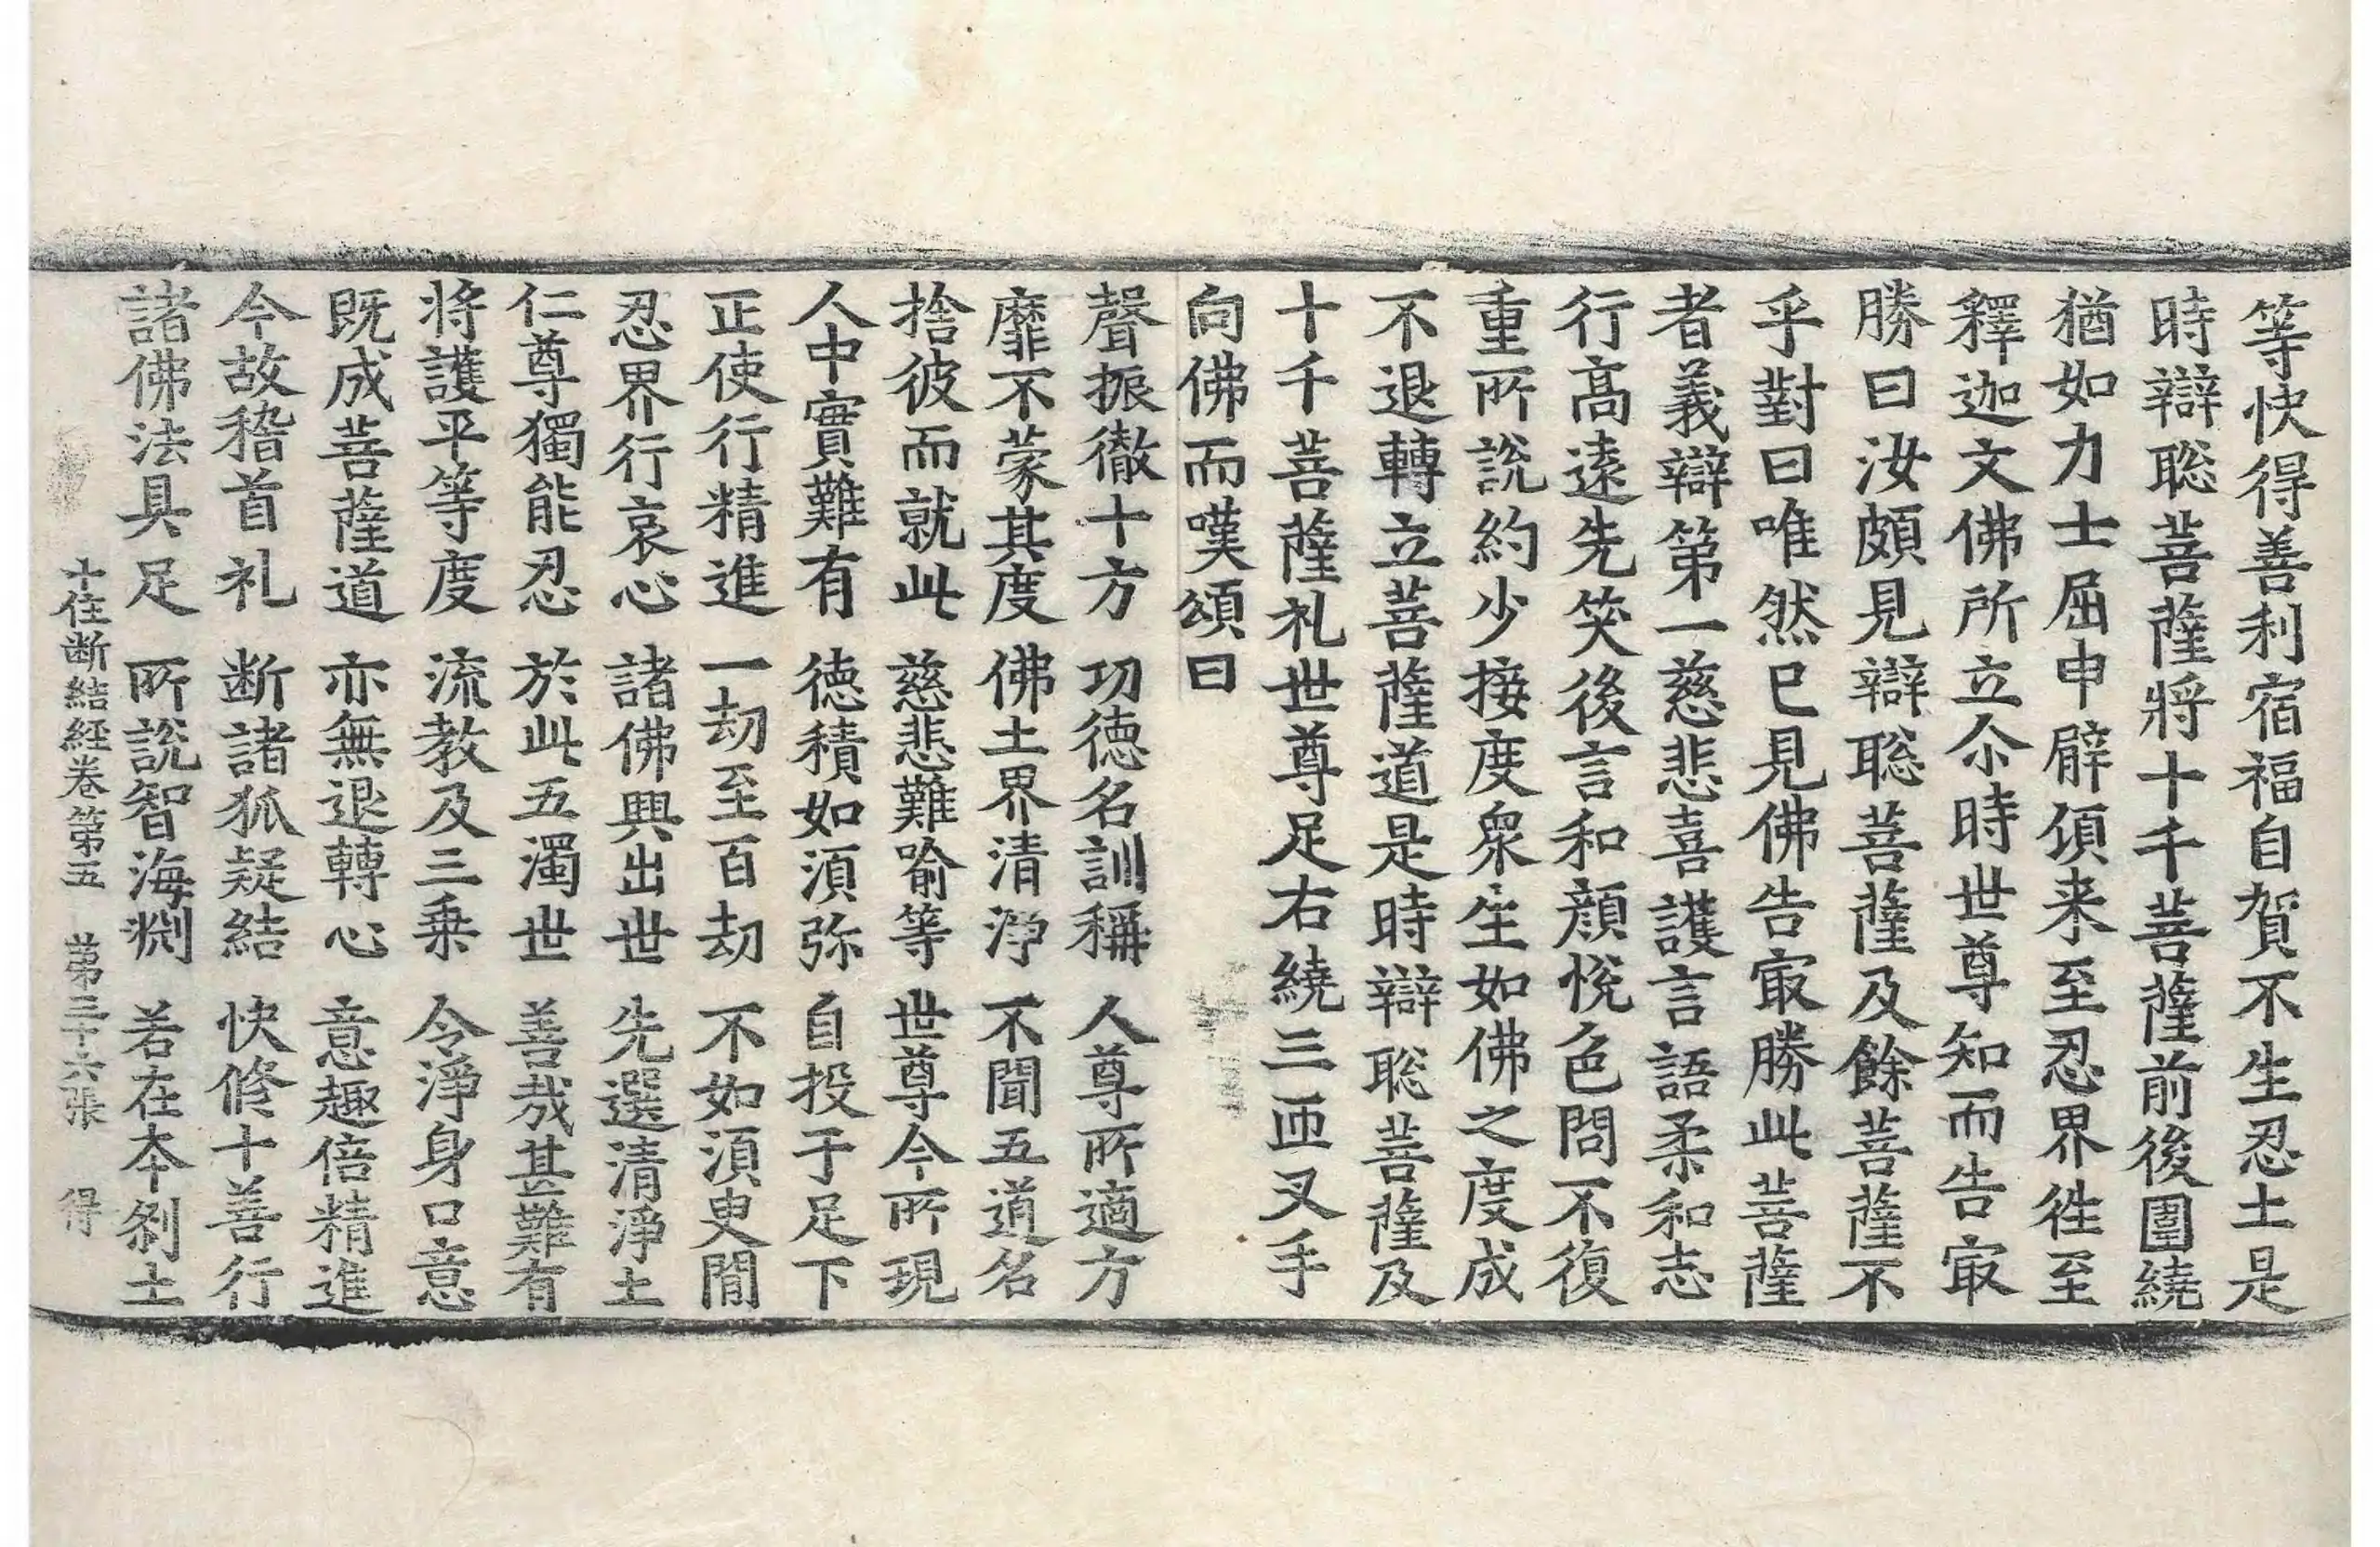 等快得善利宿福自賀不生忍土是
時辯聡菩薩將十千菩薩前後圍繞
猶如力士屈申臂傾来至忍界徃至
釋迦文佛所立尒時世尊知而告㝡
勝曰汝頗見辯聡菩薩及餘菩薩不
乎對曰唯然已見佛告㝡勝此菩薩
者義辯第一慈悲喜護言語柔和志
行高遠先笑後言和顔悅色問不復
重所說約少接度衆生如佛之度成
不退轉立菩薩道是時辯聡菩薩及
十千菩薩礼世尊足右繞三匝叉手
向佛而嘆頌曰
聲振徹十方　功德名訓稱　人尊所適方
靡不蒙其度　佛土界清淨　不聞五道名
捨彼而就此　慈悲難喻等　世尊今所現
人中實難有　德積如須弥　自投于足下
正使行精進　一劫至百劫　不如須臾間
忍界行哀心　諸佛興出世　先選清淨土
仁尊獨能忍　於此五濁世　善哉甚難有
將護平等度　流教及三乗　令淨身口意
既成菩薩道　亦無退轉心　意趣倍精進
今故稽首礼　断諸狐疑結　快修十善行
諸佛法具足　所說智海渕　若在本剎土
十住断結経卷第五　第三十六張　得